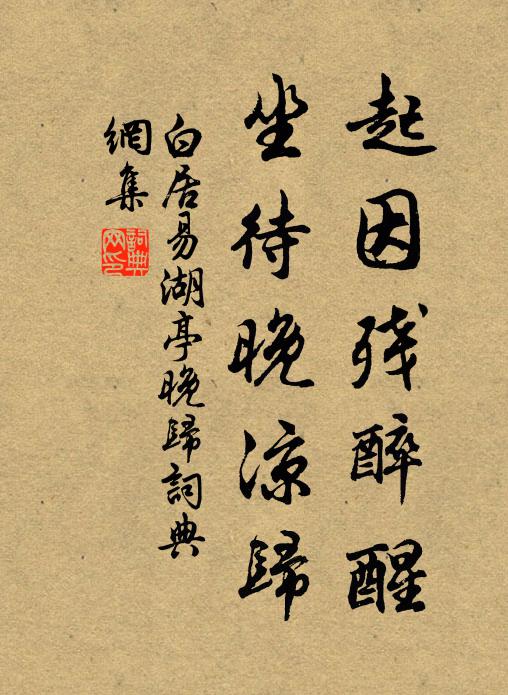 起因残醉醒
坐待晚涼歸
白居易湖亭晚歸詞典
網集
詞典網印